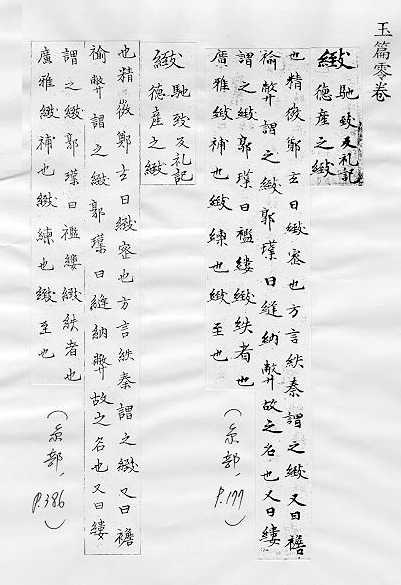 玉篇零卷
緻 馳致反礼記
德產之緻
也精微鄭玄曰緻密也方言紩秦謂之緻又曰襜
褕弊謂之緻郭璞曰縫納弊故之名也又曰褸
謂之緻郭璞曰襤縷緻紩者也
廣雅緻補也緻練也緻至也
(糸部、P.177)
緻 馳致反礼記
德產之緻
也精微鄭玄曰緻密也方言紩秦謂之緻又曰襜
褕弊謂之緻郭璞曰縫納弊故之名也又曰褸
謂之緻郭璞曰襤縷緻紩者也
廣雅緻補也緻練也緻至也
(糸部、P.386)